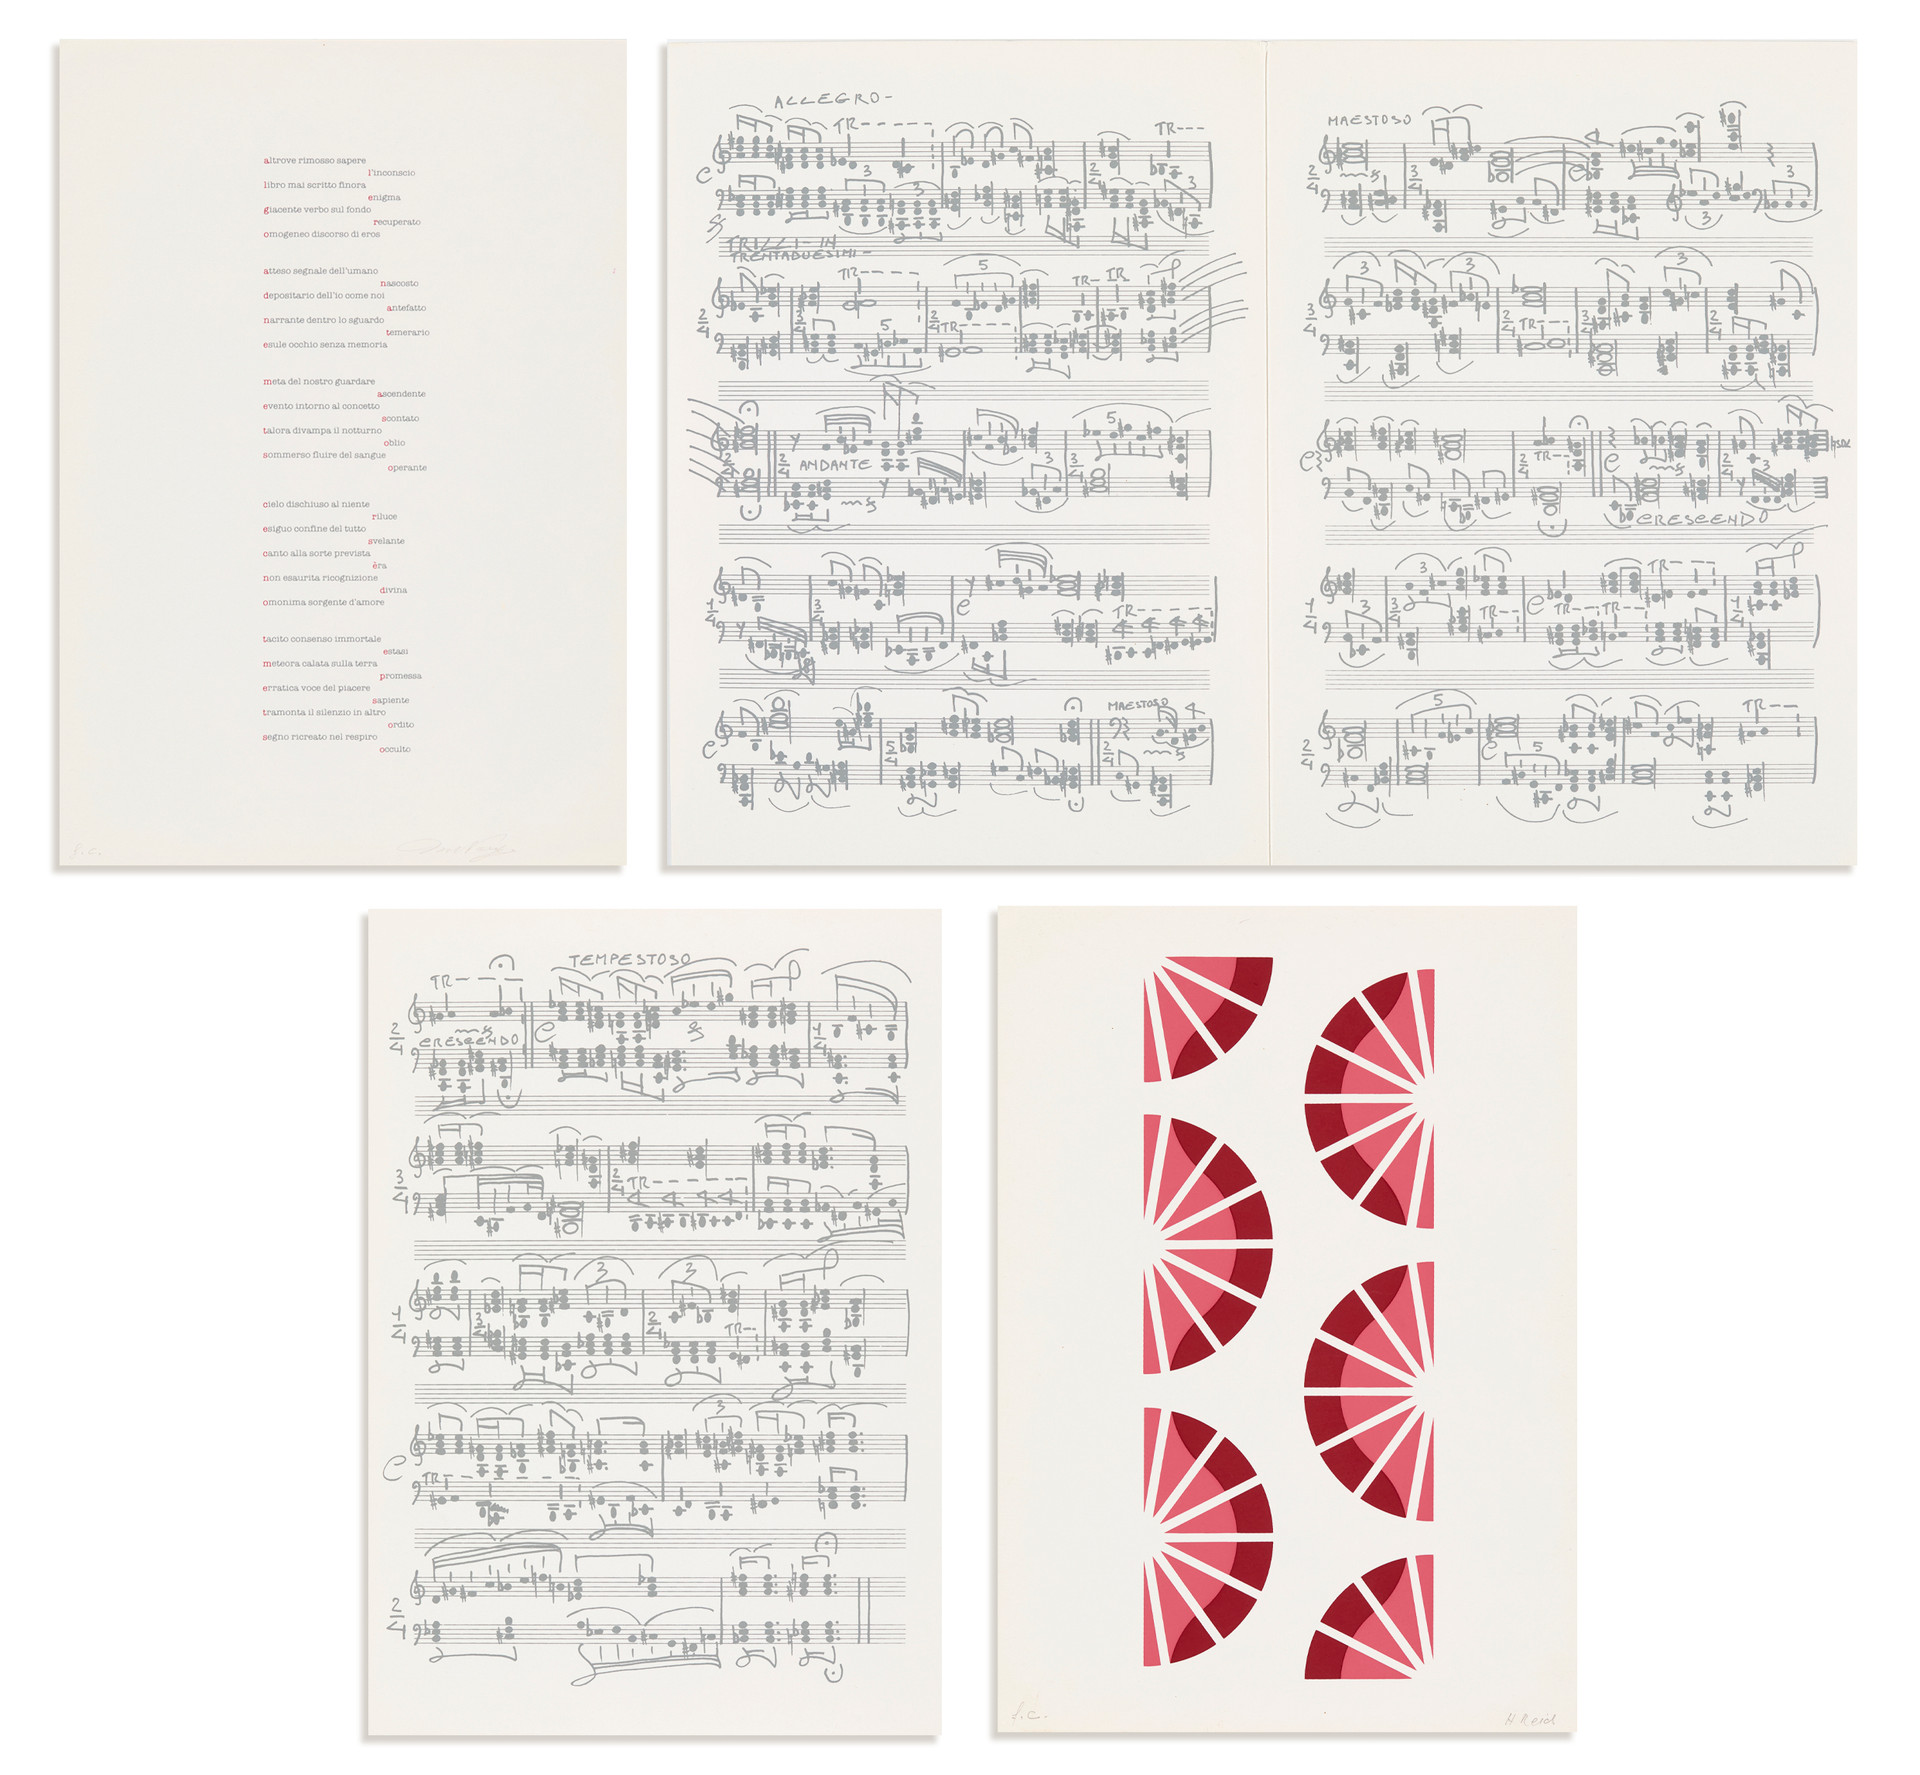 altrove rimosso sapere
l'inconscio
libro mai scritto finora
enigma
giacente verbo sul fondo
recuperato
omogeneo discorso di eros
atteso segnale dell'umano
nascosto
depositario dell'io come noi
antefatto
narrante dentro lo sguardo
temerario
esule occhio senza memoria
meta del nostro guardare
ascendente
evento intorno al concetto
scontato
talora divampa il notturno
oblio
sommerso fluire del sangue
operante
cielo dischiuso al niente
riluce
esiguo confine del tutto
svelante
canto alla sorte prevista
èra
non esaurita ricognizione
divina
omonima sorgente d'amore
tacito consenso immortale
estasi
meteora calata sulla terra
promessa
erratica voce del piacere
sapiente
tramonta il silenzio in altro
ordito
segno ricreato nel respiro
occulto
f.c.
ALLEGRO-
TR-----
3
3
2/4
TR---
3
TRILLI-IN
TRENTADUESIMI-
TR-----
5
TR-
2/4
3/4
5
2/4
TR----
2/4
ANDANTE
5
3
3/4
1/4
3/4
TR------
5/4
MAESTOSO
2/4
MAESTOSO
2/4
3/4
3
3
3
3
3
3/4
2/4
TR--
3/4
2/4
TR--
2/4
2/4
3
CRESCENDO
3
TR---
1/4
3
3/4
TR--
TR--
TR--
1/4
5
TR--
2/4
5
TEMPESTOSO
TR---
2/4
CRESCENDO
1/4
3/4
2/4
TR-------
1/4
3
3
3/4
2/4
TR--
3
TR--------
2/4
f.c.
H Reid